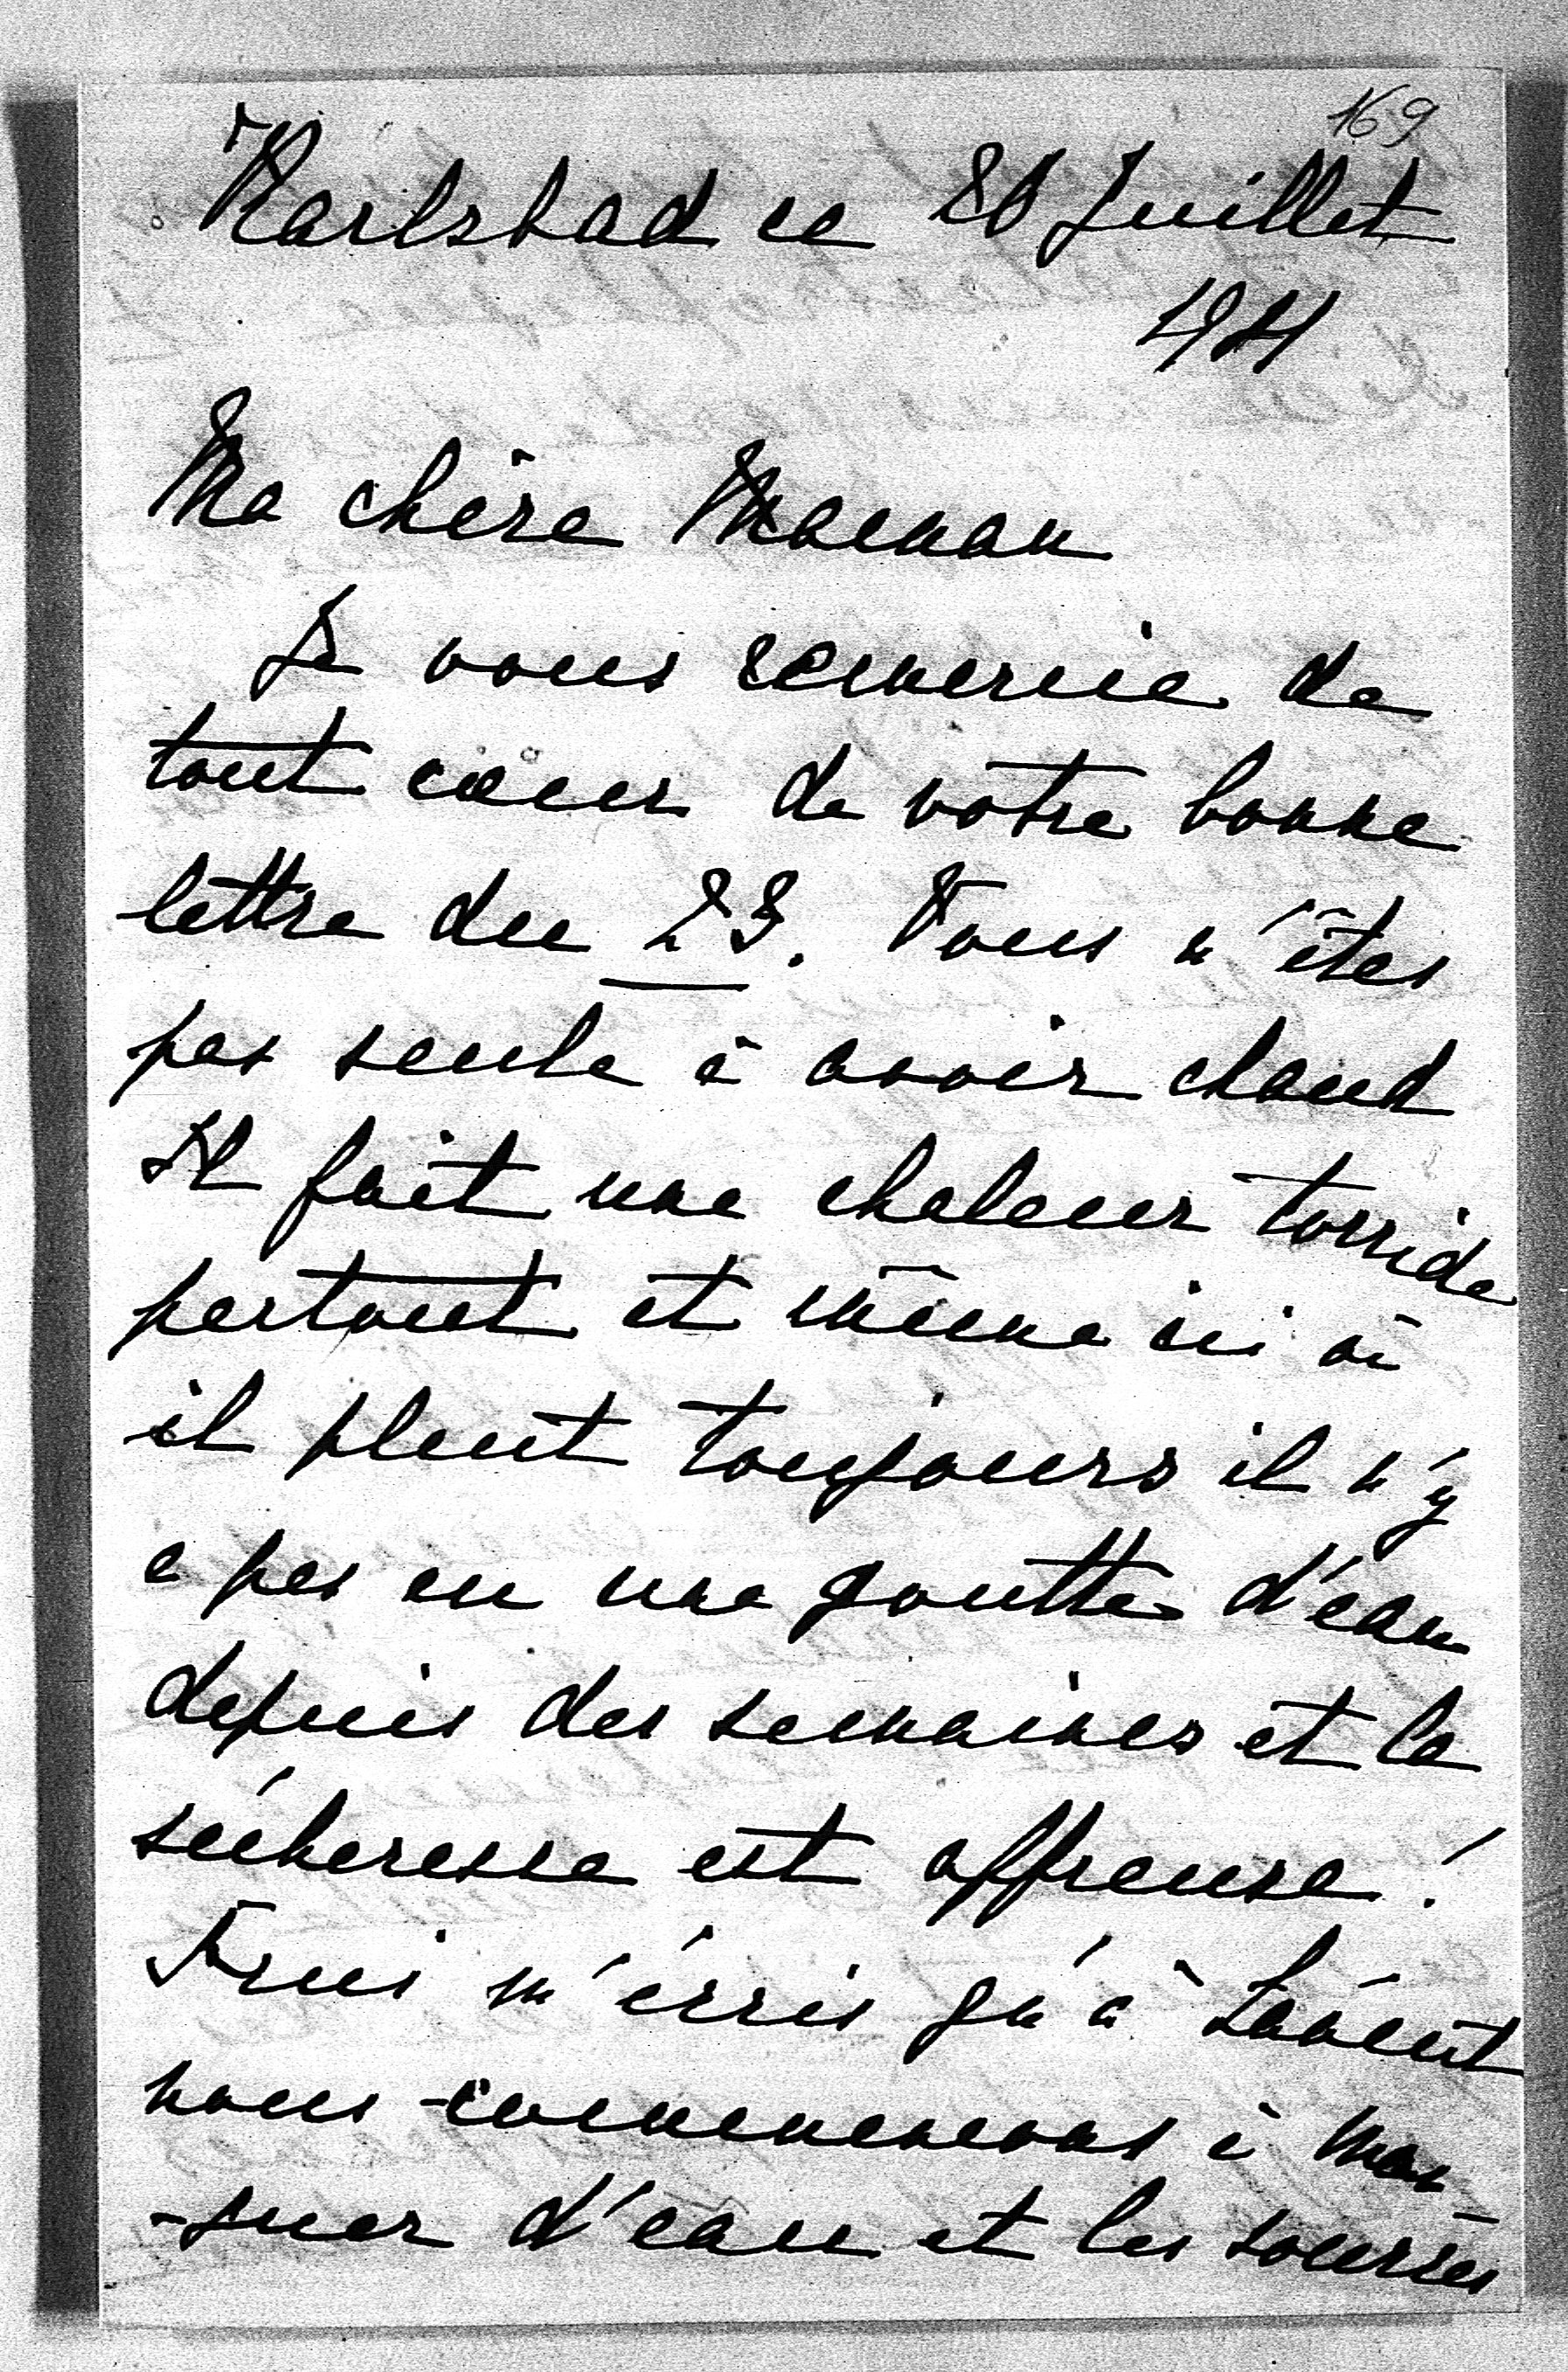 169
Karlsbad ce 26 Juillet
1911
Ma chère Maman
Je vous remercie de
tout cœur de votre bonne
lettre du 23. Vous n'êtes
pas seule à avoir chaud
Il fait une chaleur torride
partout et même ici où
il pleut toujours il n'y
a pas eu une goutte d'eau
depuis des semaines et la
sécheresse est affreuse!
m'écris qu'à
nous commencons à man
-quer d'eau et les sources